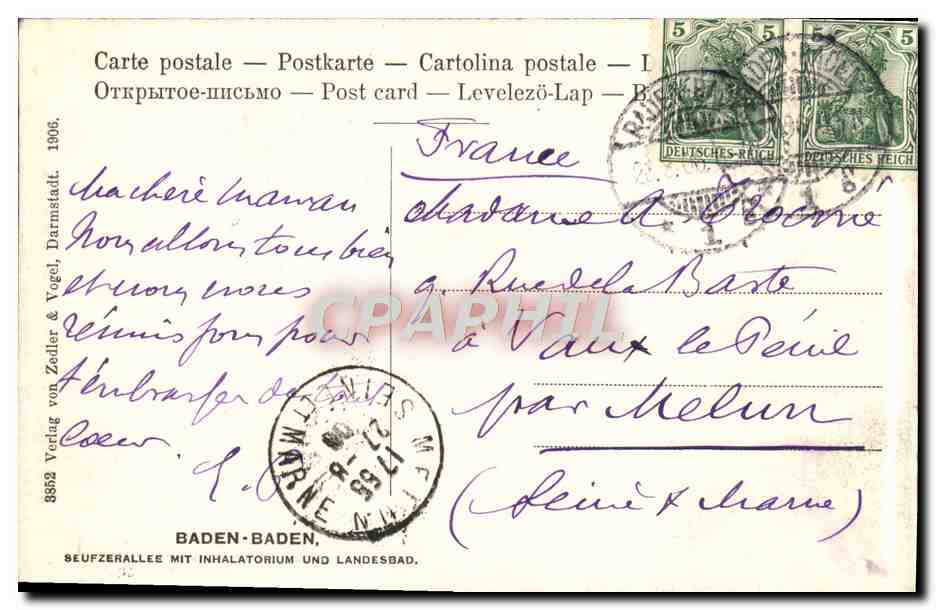 Carte postale — Postkarte — Cartolina postale —
Открытое-письмо — Post card — Levelező-Lap —
5 5 5 5
DEUTSCHES REICH DEUTSCHES REICH
BADEN-BADEN
1
France
Madame A.
9. Rue de la Baste
à Vaux le Pénil
par Melun
(Seine & Marne)
Ma chère maman
Nous allons tous bien
et nous sommes
réunis pour
t'embrasser de tout
cœur
E.
CPAPHIL
MELUN
17 55
27 8
SEINE ET MARNE
BADEN-BADEN,
SEUFZERALLEE MIT INHALATORIUM UND LANDESBAD.
3852 Verlag von Zedler & Vogel, Darmstadt. 1906.